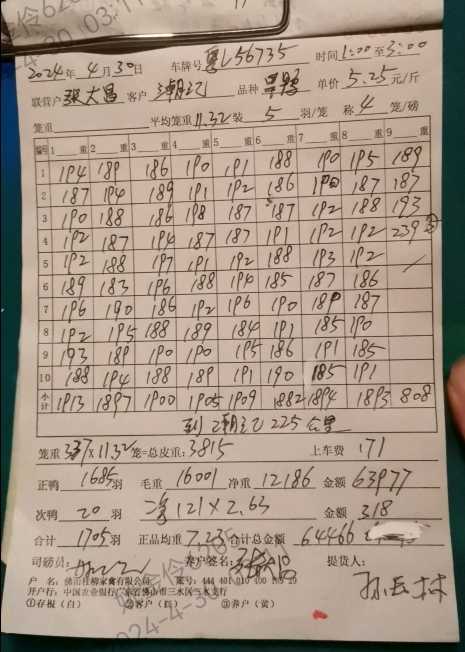 2024年 4月30日 车牌号 粤L56735 时间 1:00 至 3:00
联营户 张大昌 客户 潮汇 品种 旱鸭 单价 5.25 元/斤
笼重 平均笼重 11.32 装 5 羽/笼 称 4 笼/磅
编号 1 重 2 重 3 重 4 重 5 重 6 重 7 重 8 重 9 重
1 194 189 186 190 191 188 190 195 189
2 187 194 189 191 192 186 190 187 187
3 190 188 186 198 187 187 192 188 193
4 192 187 194 187 187 191 192 192 239
5 192 188 197 191 192 188 193 192
6 189 183 196 188 194 185 187 186
7 196 190 186 192 196 190 189 187
8 192 195 188 189 184 191 185 190
9 193 189 190 190 195 186 191 185
10 188 194 188 189 191 190 185 191
小计 1913 1897 1900 1905 1909 1882 1894 1893 808
到潮汇 225 公里
笼重 337 X 11.32 笼=总皮重: 3815 上车费 171
正鸭 1685 羽 毛重 16001 净重 12186 金额 63977
次鸭 20 羽 121 X 2.63 金额 318
合计 1705 羽 正品均重 7.23 合计总金额 64466
司磅员: 养户签名: 提货人:
户 名: 佛山桂柳家禽有限公司 账号:
开户行: 中国农业银行广东省佛山市三水区三水支行
①存根(白) ②客户(红) ③养户(黄)